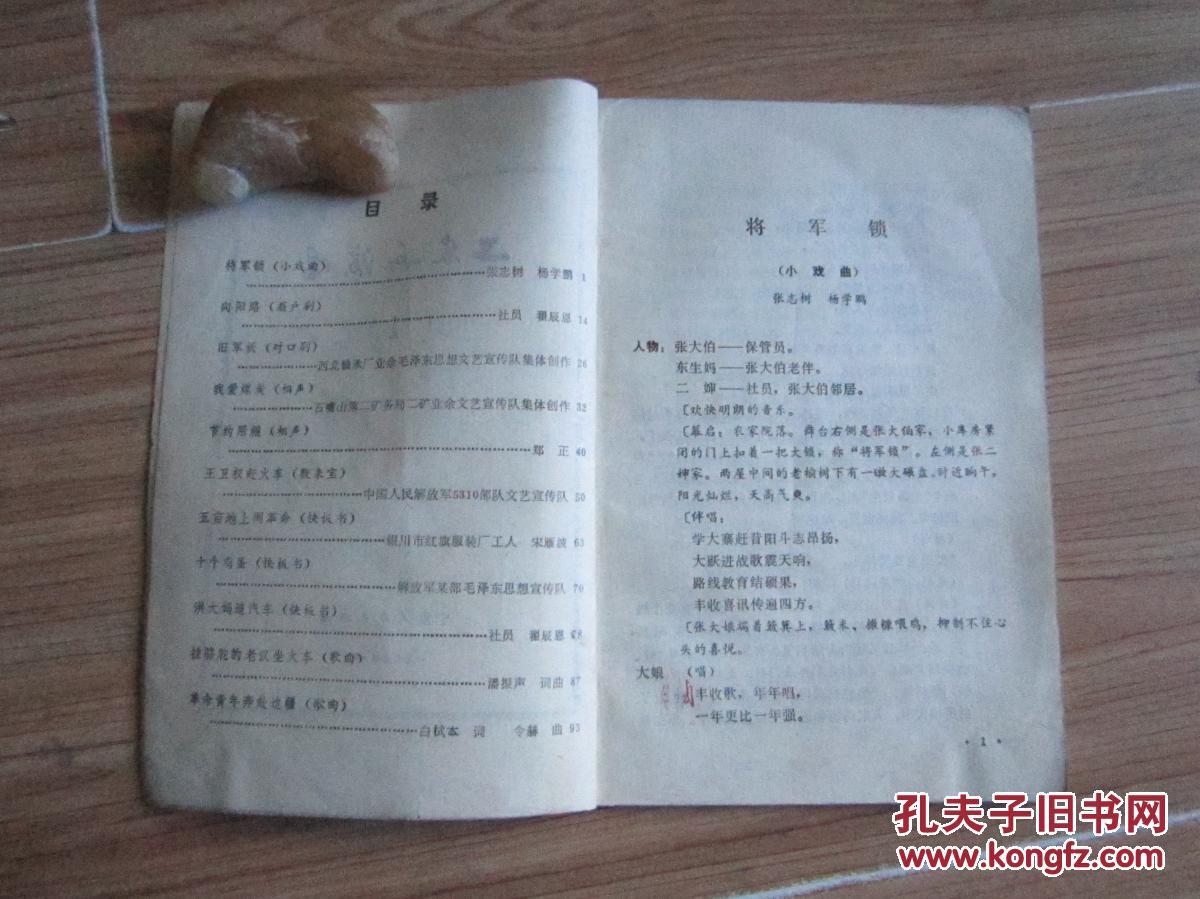 目 录
将军锁（小戏曲）
张志树 杨学鹏 1
向阳路（眉户剧）
社员 翟辰恩 14
旧军装（对口剧）
河北轴承厂业余毛泽东思想文艺宣传队集体创作 26
我爱煤炭（相声）
石嘴山第二矿务局二矿业余文艺宣传队集体创作 32
节约用粮（相声）
郑 正 40
王卫权赶火车（数来宝）
中国人民解放军5310部队文艺宣传队 50
五亩地上闹革命（快板书）
银川市红旗服装厂工人 宋雁波 63
十个鸡蛋（快板书）
解放军某部毛泽东思想宣传队 70
洪大妈追汽车（快板书）
社员 翟辰恩 78
拉骆驼的老汉坐火车（歌曲）
潘振声 词曲 87
革命青年奔赴边疆（歌曲）
白轼本 词 令赫 曲 95
将 军 锁
（小 戏 曲）
张志树 杨学鹏
人物：张大伯——保管员。
东生妈——张大伯老伴。
二 婶——社员，张大伯邻居。
〔欢快明朗的音乐。
〔幕启：农家院落。舞台右侧是张大伯家，小库房紧
闭的门上扣着一把大锁，称“将军锁”。左侧是张二
婶家。两屋中间的老榆树下有一墩大磙盘。时近晌午，
阳光灿烂，天高气爽。
〔伴唱：
学大寨赶昔阳斗志昂扬，
大跃进战歌震天响，
路线教育结硕果，
丰收喜讯传遍四方。
〔张大娘端着簸箕上，簸米、撒糠喂鸡，抑制不住心
头的喜悦。
大娘 （唱）
丰收歌，年年唱，
一年更比一年强。
·1·
孔夫子旧书网
www.kongfz.com